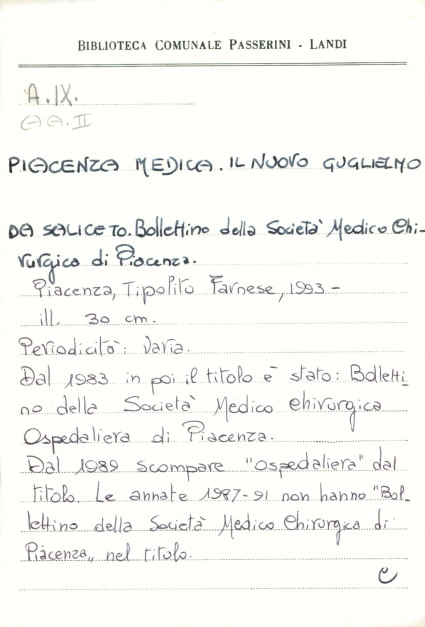 BIBLIOTECA COMUNALE PASSERINI - LANDI
A.IX.
AA.II
PIACENZA MEDICA. IL NUOVO GUGLIELMO
DA SALICETO. Bollettino della Società Medico Chi-
rurgica di Piacenza.
Piacenza, Tipolito Farnese, 1993 -
ill. 30 cm.
Periodicità: varia.
Dal 1983 in poi il titolo è stato: Bolletti
no della Società Medico chirurgica
Ospedaliera di Piacenza.
Dal 1989 scompare "Ospedaliera" dal
titolo. Le annate 1987-91 non hanno "Bol-
lettino della Società Medico Chirurgica di
Piacenza" nel titolo.
C